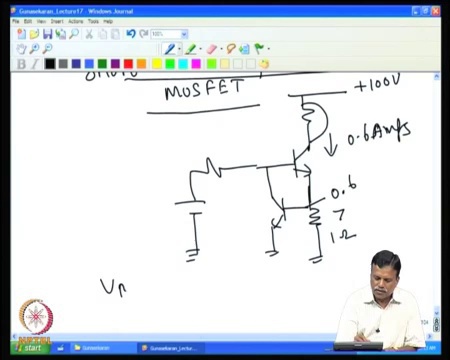 Gunasekaran_Lecture17 - Windows Journal
File Edit View Insert Actions Tools Help
100%
B I
MOSFET
+100V
0.6 Amps
0.6
7
1Ω
NPTEL
start
Gunasekaran
Gunasekaran_Lectu...